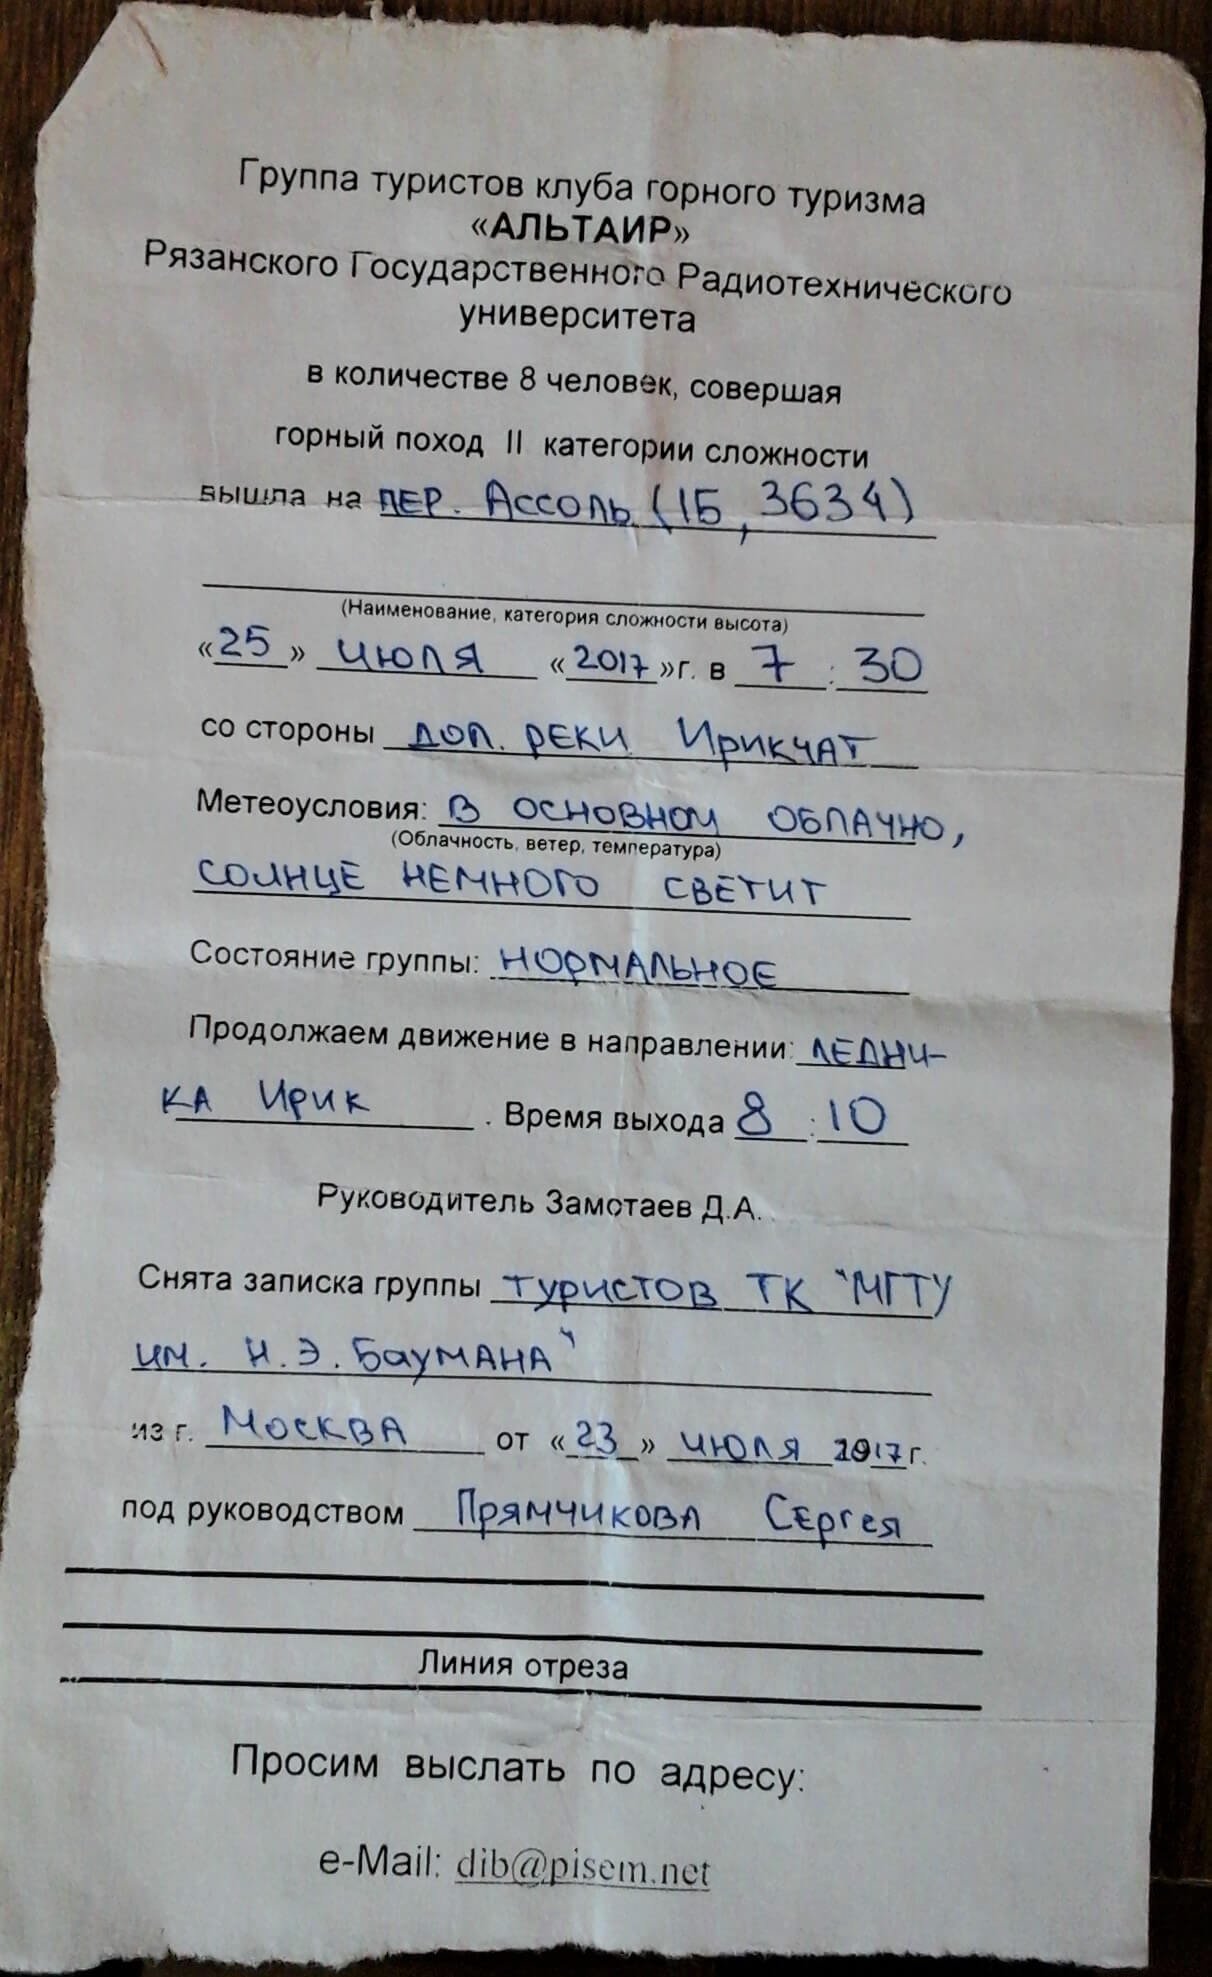 Группа туристов клуба горного туризма
«АЛЬТАИР»
Рязанского Государственного Радиотехнического
университета
в количестве 8 человек, совершая
горный поход II категории сложности
вышла на ПЕР. АССОЛЬ (1Б, 3634)
(Наименование, категория сложности высота)
«25» ИЮЛЯ «2017»г. в 7 : 30
со стороны ДОЛ. РЕКИ ИРИКЧАТ
Метеоусловия: В ОСНОВНОМ ОБЛАЧНО,
(Облачность, ветер, температура)
СОЛНЦЕ НЕМНОГО СВЕТИТ
Состояние группы: НОРМАЛЬНОЕ
Продолжаем движение в направлении: ЛЕДНИ-
КА ИРИК . Время выхода 8 : 10
Руководитель Замотаев Д.А.
Снята записка группы ТУРИСТОВ ТК "МГТУ
ИМ. Н.Э. БАУМАНА"
из г. МОСКВА от «23» ИЮЛЯ 2017г.
под руководством ПРЯМЧИКОВА СЕРГЕЯ
Линия отреза
Просим выслать по адресу:
e-Mail: dib@pisem.net